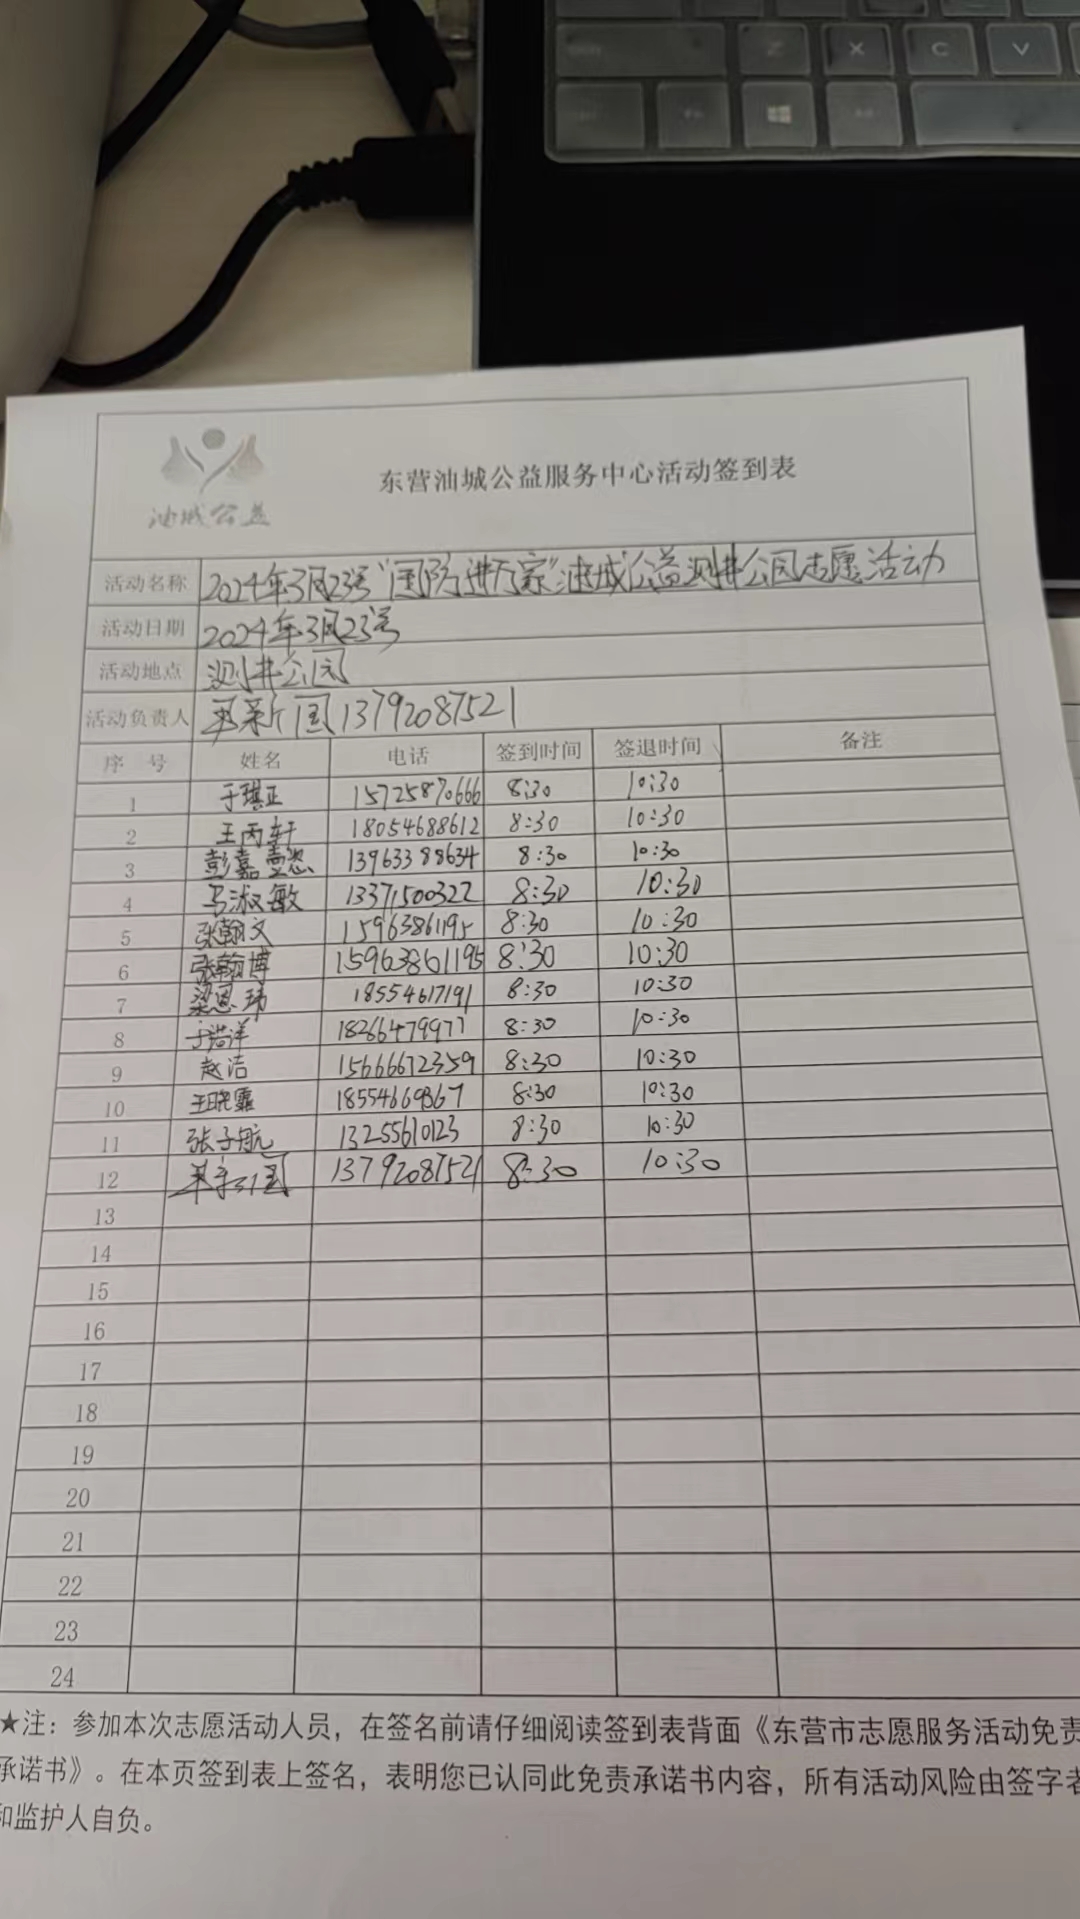 Z X C V
油城公益
东营油城公益服务中心活动签到表
活动名称 2024年3月23号“国防进万家”油城公益测井公园志愿活动
活动日期 2024年3月23号
活动地点 测井公园
活动负责人 新国 13792087521
序 号 姓名 电话 签到时间 签退时间 备注
1 于琪正 15725870666 8:30 10:30
2 王丙轩 18054688612 8:30 10:30
3 彭嘉壹恣 13963388634 8:30 10:30
4 马淑敏 13371500322 8:30 10:30
5 张翰文 15963861195 8:30 10:30
6 张翰博 15963861195 8:30 10:30
7 梁恩玮 18554617191 8:30 10:30
8 于浩洋 18266479977 8:30 10:30
9 赵洁 15666672359 8:30 10:30
10 王晓霏 8:30 10:30
11 张子航 13255610123 8:30 10:30
12 13792087521 8:30 10:30
13
14
15
16
17
18
19
20
21
22
23
24
★注：参加本次志愿活动人员，在签名前请仔细阅读签到表背面《东营市志愿服务活动免责
承诺书》。在本页签到表上签名，表明您已认同此免责承诺书内容，所有活动风险由签字者
和监护人自负。